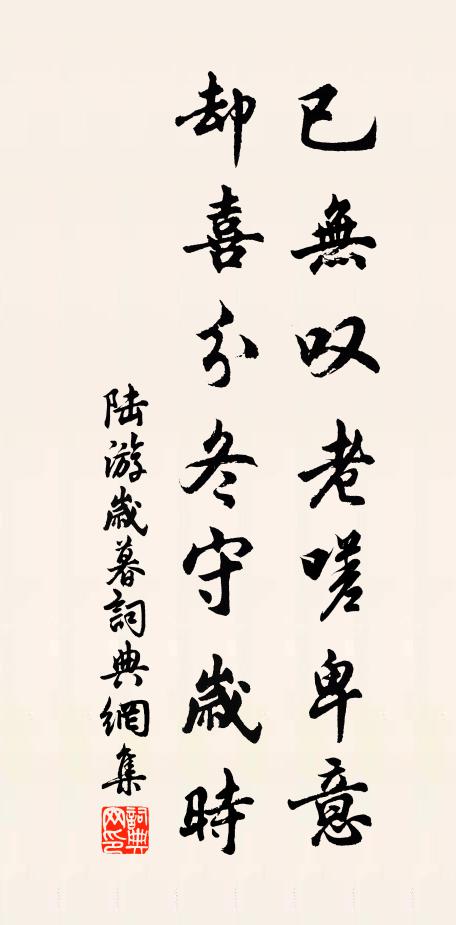 已無叹老嗟卑意
却喜分冬守歲時
陆游歲暮詞典網集
詞典網印